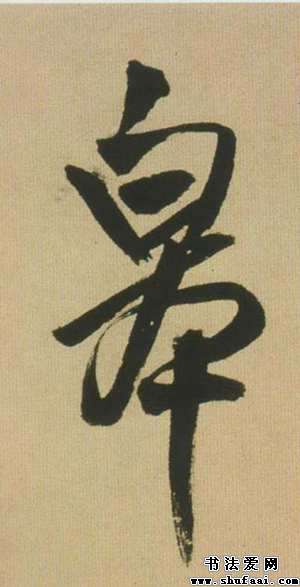 皋
书法爱网
www.shufaai.com